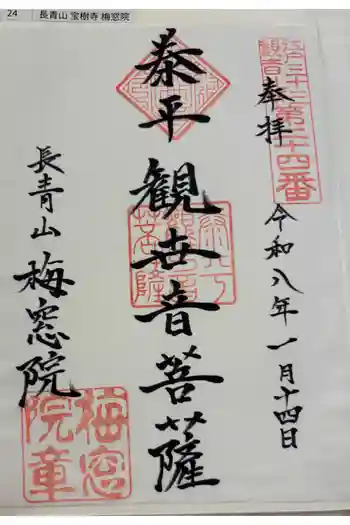 24 長青山 宝樹寺 梅窓院
江戸三十三
観音
第二十四番
奉拝
令和八年一月十四日
泰平観世音菩薩
長青山梅窓院
梅窓
院章